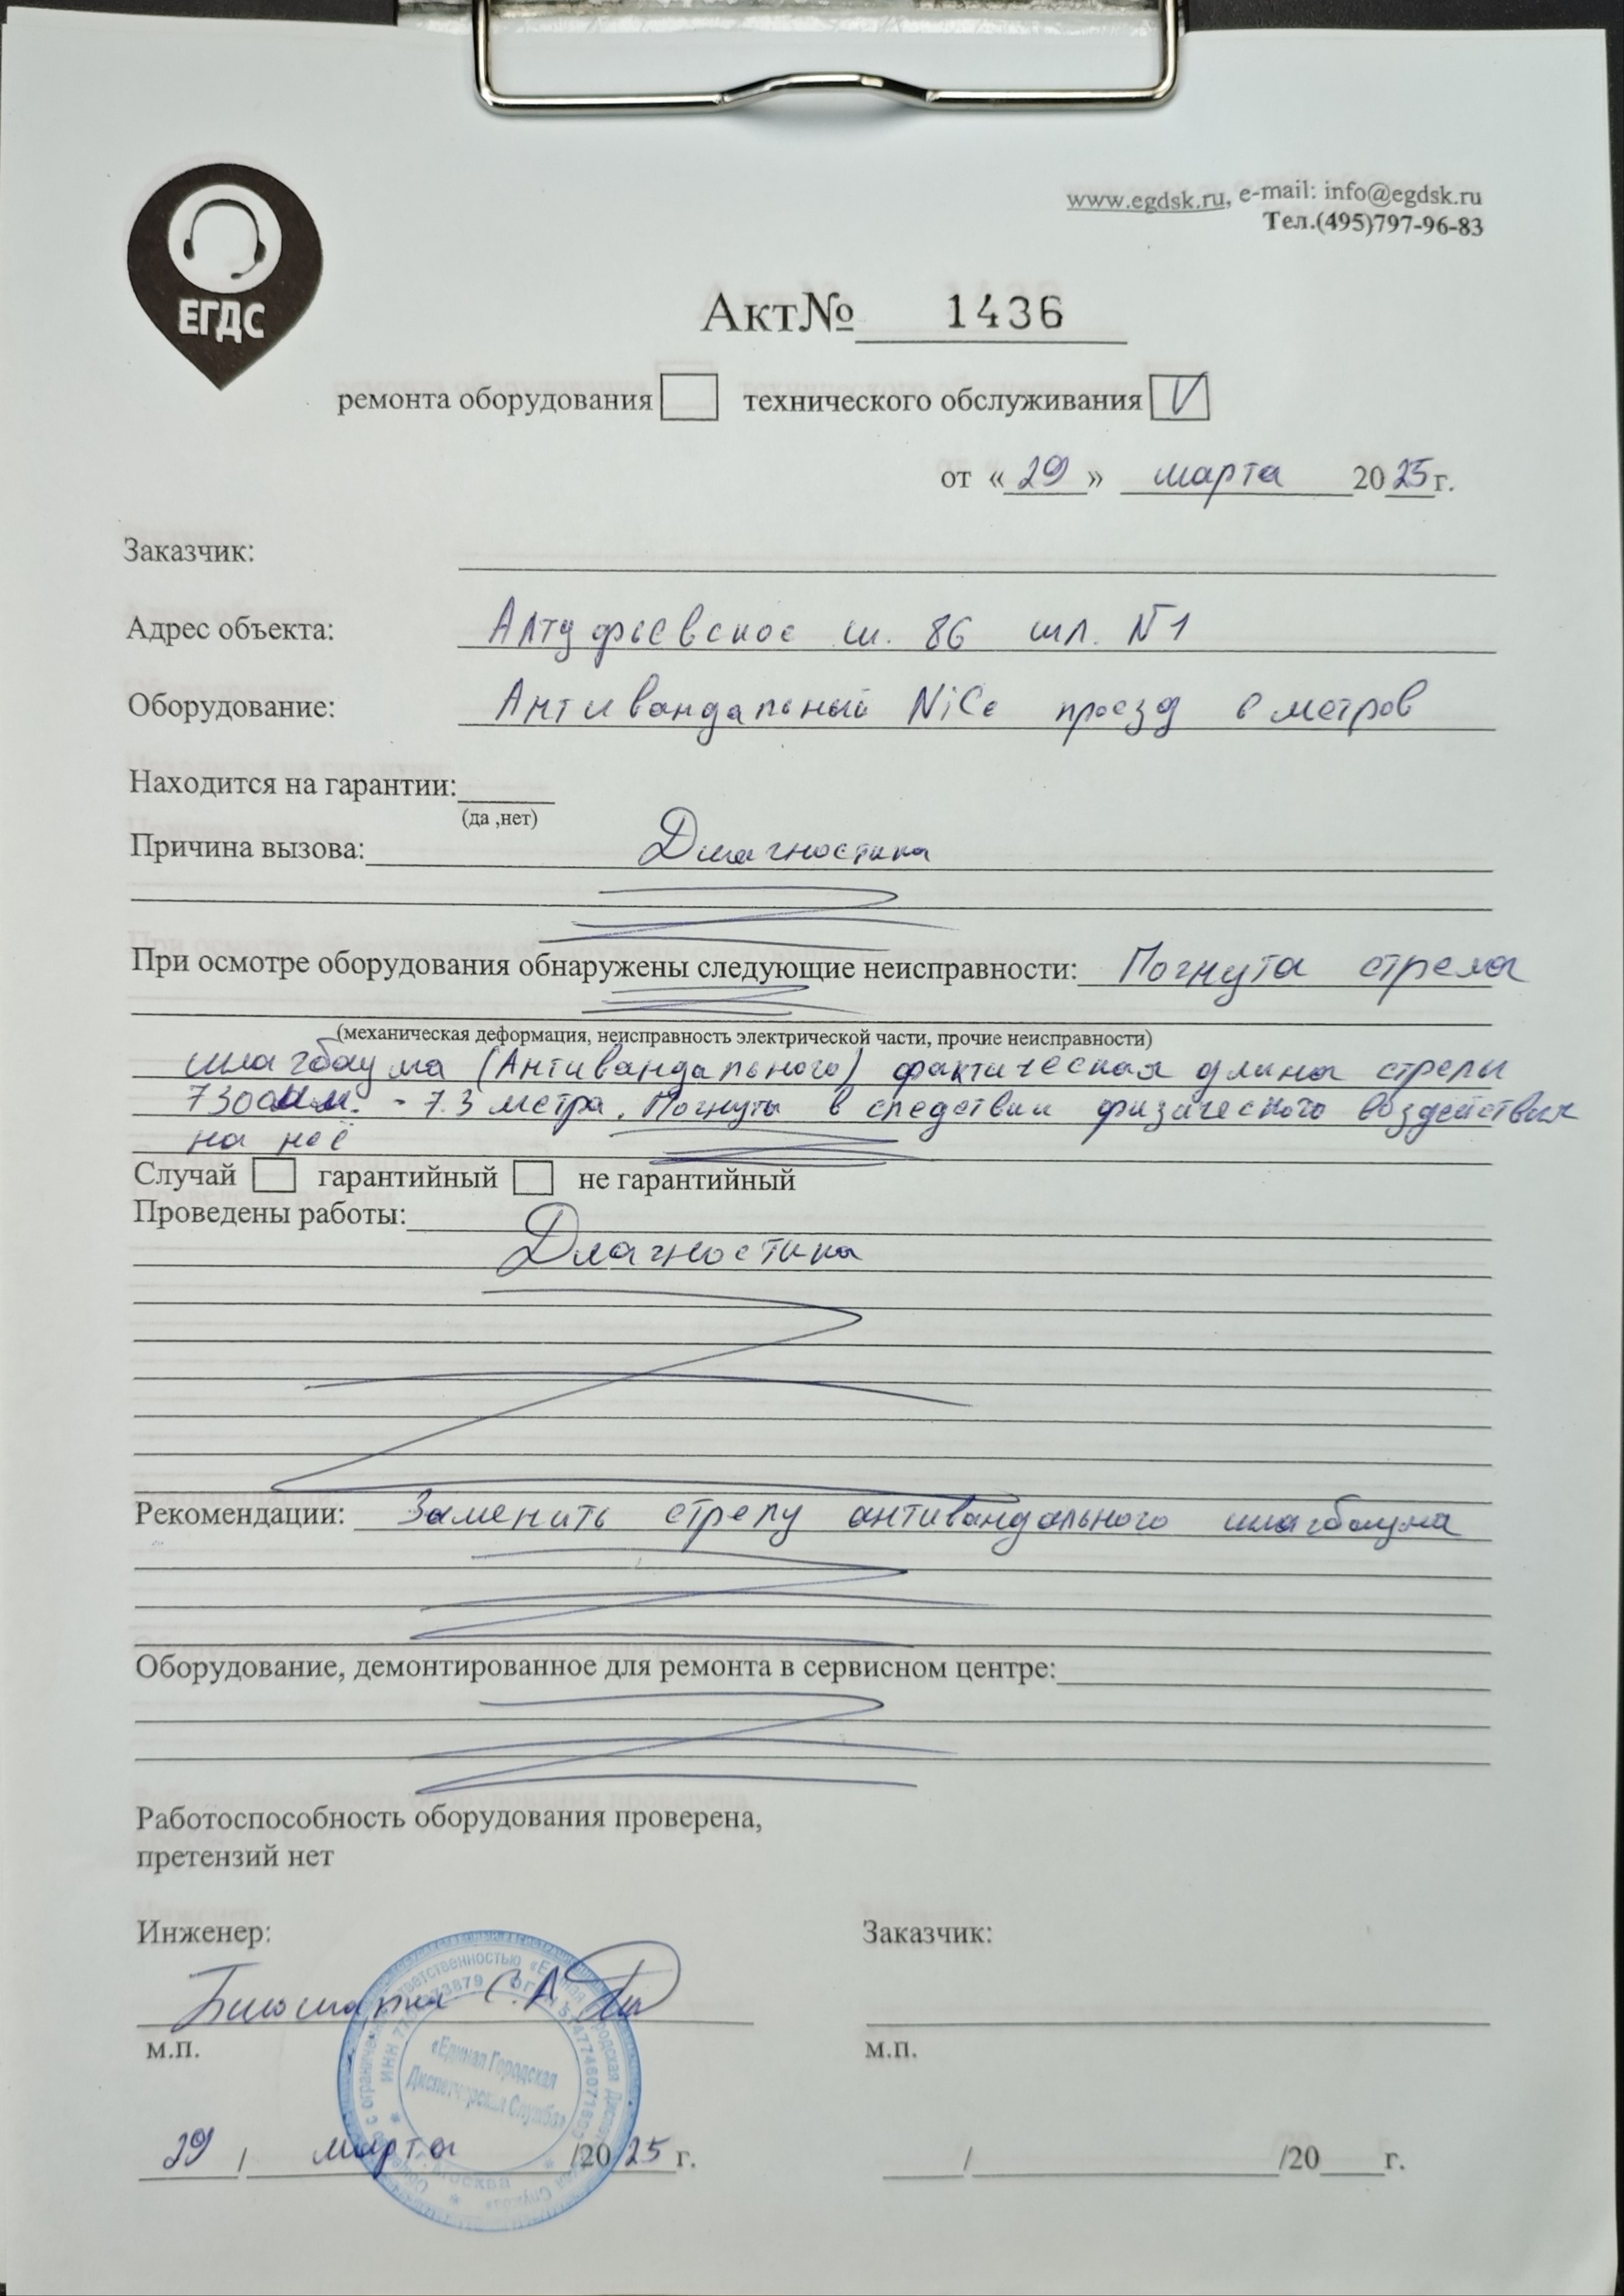 www.egdsk.ru, e-mail: info@egdsk.ru
Тел.(495)797-96-83
ЕГДС
Акт№ 1436
ремонта оборудования технического обслуживания V
от «29» марта 2025г.
Заказчик:
Адрес объекта: Алтуфьевское ш. 86 шл. №1
Оборудование: Антивандальный NiCe проезд 6 метров
Находится на гарантии:
(да ,нет)
Причина вызова: Диагностика
При осмотре оборудования обнаружены следующие неисправности: Погнута стрела
(механическая деформация, неисправность электрической части, прочие неисправности)
шлагбаума (Антивандального) фактическая длина стрелы
7300мм. - 7.3 метра. Погнута в следствии физического воздействия
на неё
Случай гарантийный не гарантийный
Проведены работы:
Диагностика
Рекомендации: Заменить стрелу антивандального шлагбаума
Оборудование, демонтированное для ремонта в сервисном центре:
Работоспособность оборудования проверена,
претензий нет
Инженер: Заказчик:
С.А
м.п. м.п.
«Единая Городская
Диспетчерская Служба»
Москва
29 / марта /2025г. / /20 г.